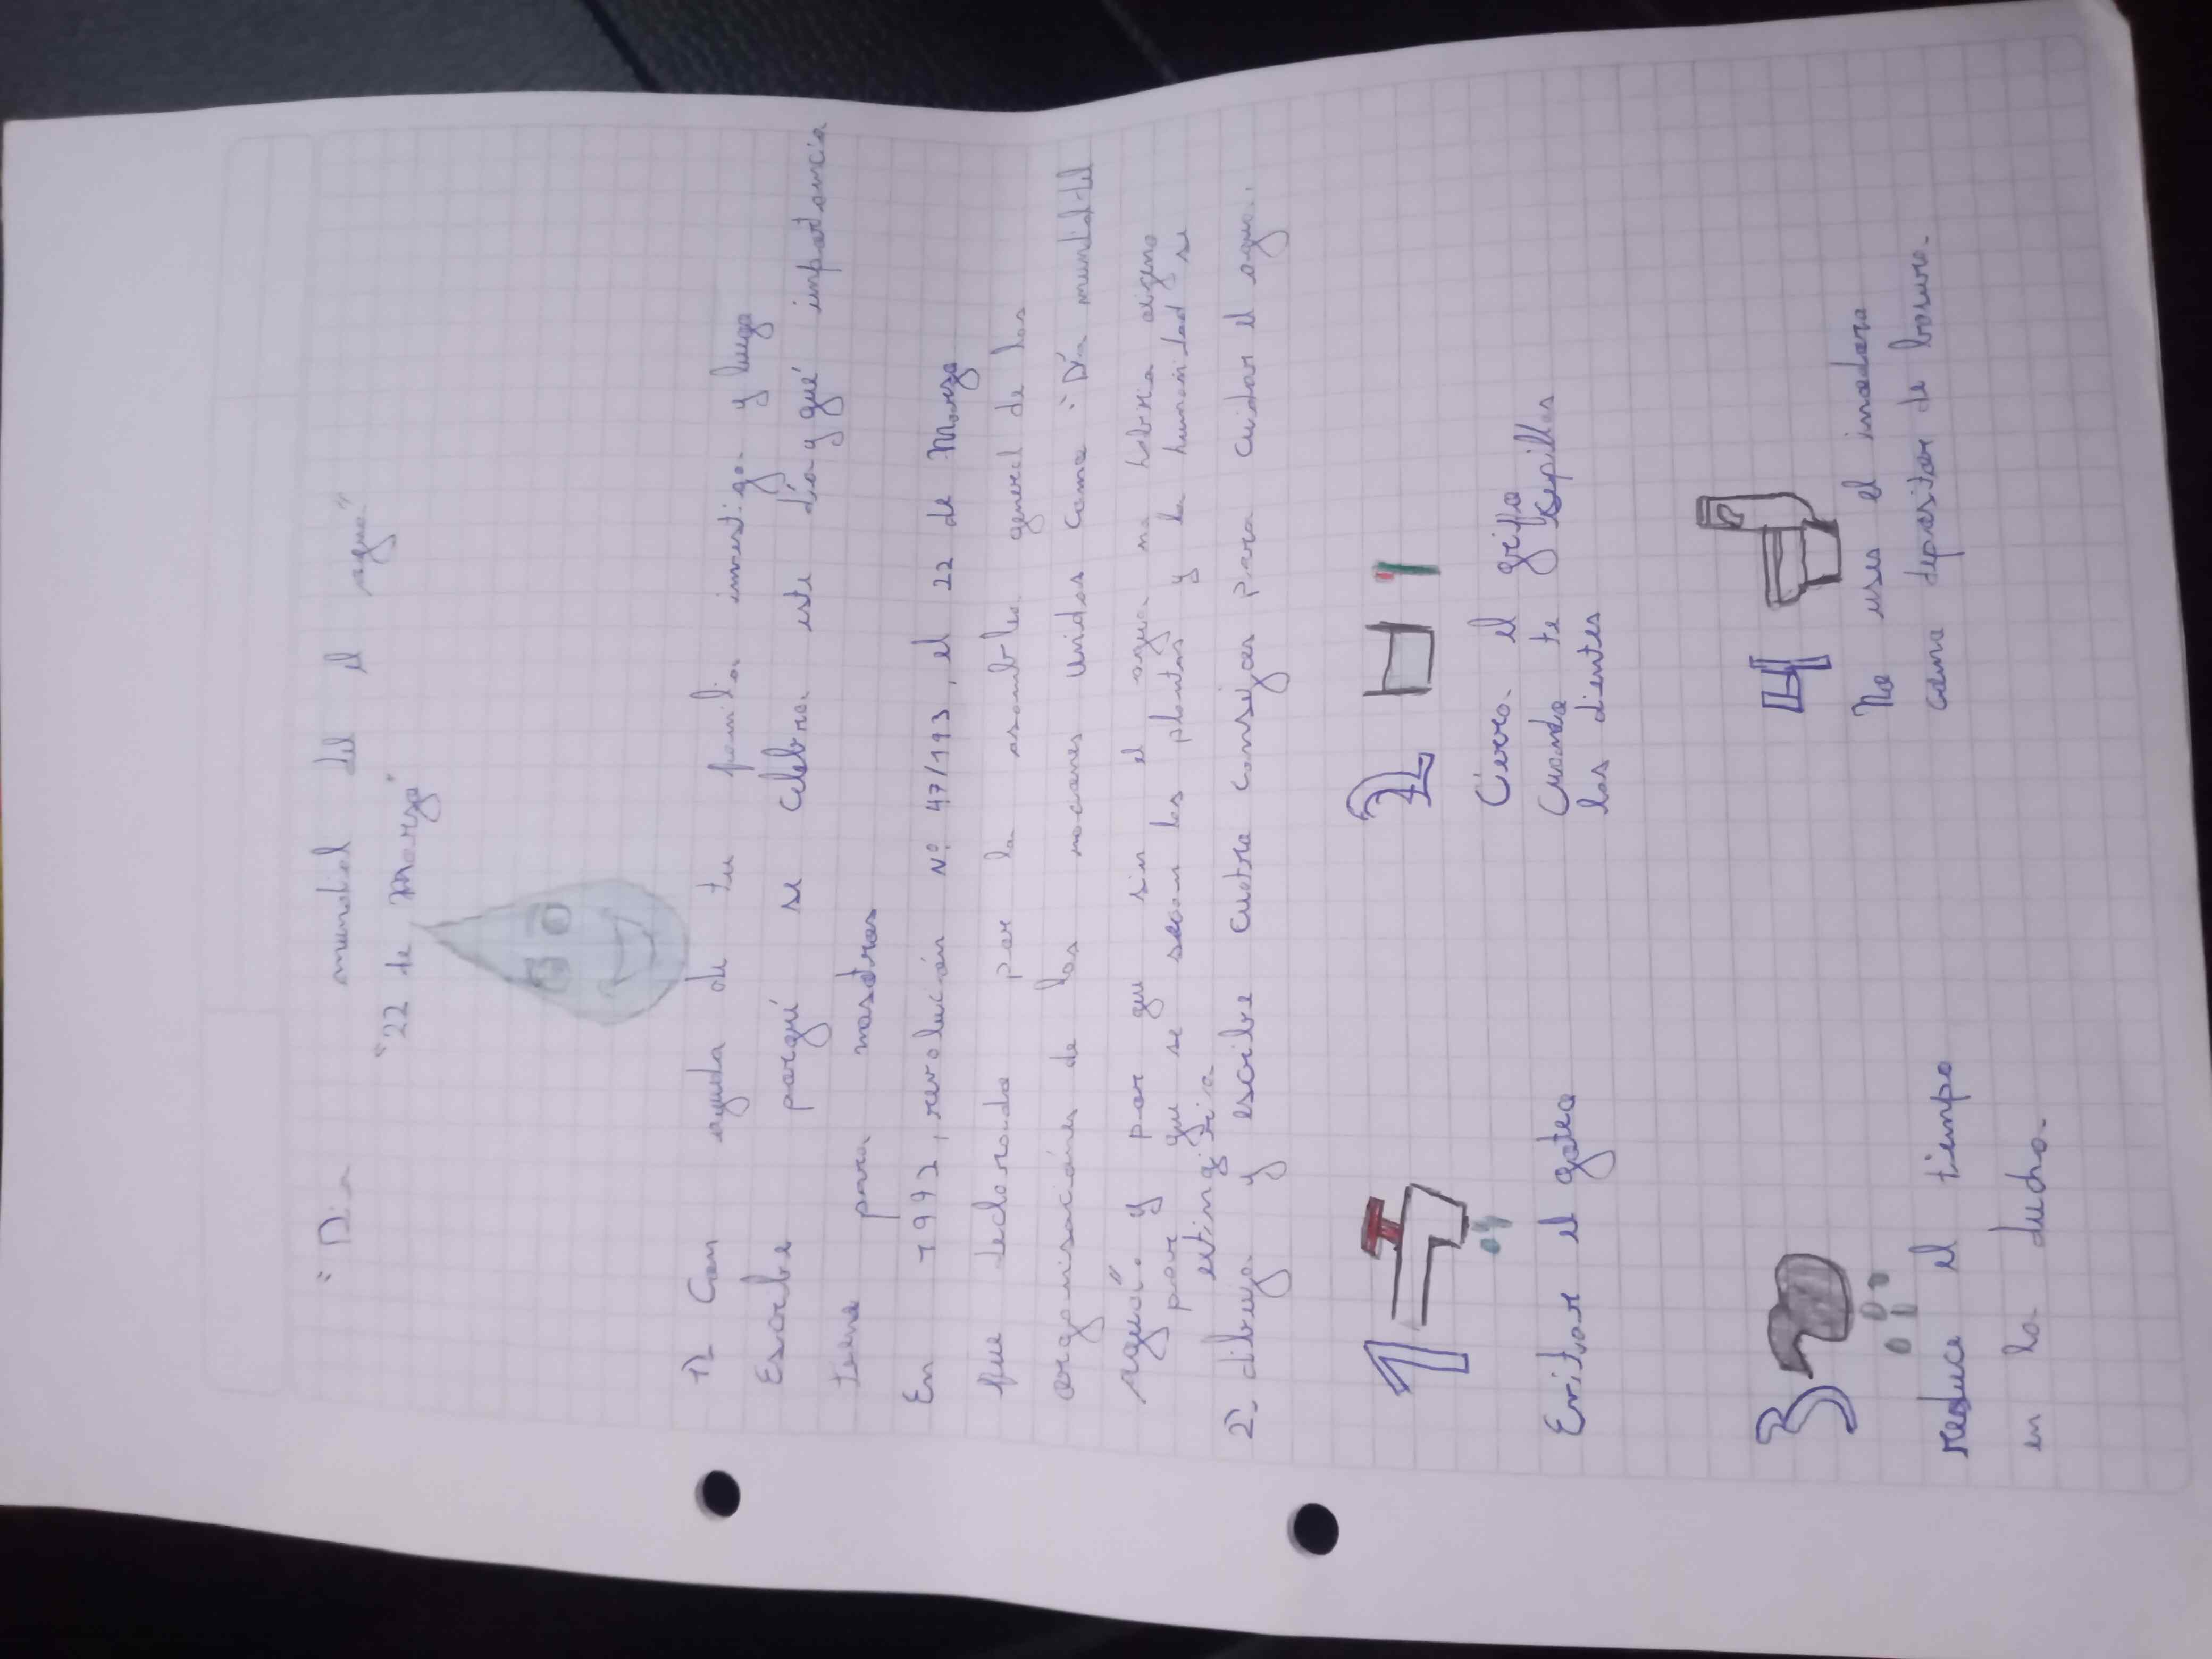 "Dia mundial del el agua"
"22 de Marzo"
1- Con ayuda de tu familia investiga y luego
Escribe porqué se celebra este día y qué importancia
tiene para nosotros
En 1992, revolución Nº 47/193, el 22 de Marzo
fue declarado por la asamblea general de las
organisaciónes de las naciones unidas como "Día mundial del
agua". y por que sin el agua no habria oxigeno
por que se secan las plantas y la humanidad se
estingiria
2- dibuja y escribe cuatro consejos para cuidar el agua.
1 2
Evitar el goteo
Cierra el grifo
Cuando te cepillas
los dientes
3 4
reduce el tiempo
en la ducha.
No uses el inodoro
como depositor de basura.